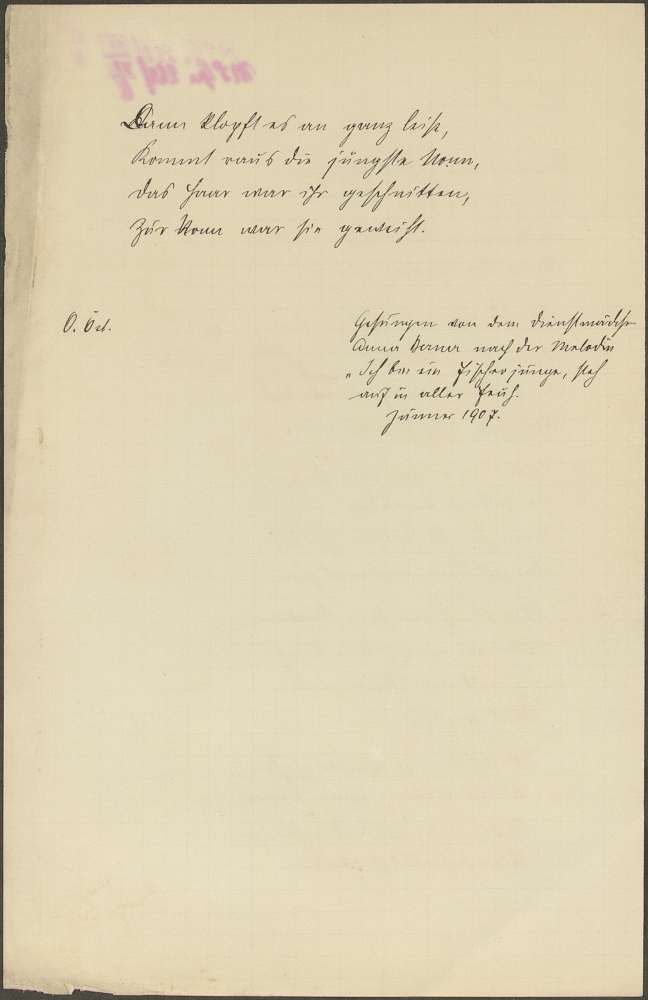 Dann klopft es an ganz leise,
Kommt raus die jüngste Nonn,
Das Haar war ihr geschnitten,
Zur Nonn war sie geweiht.
O. Öst.
Gesungen von dem Dienstmädch
Anna nach der Melodie
„Ich bin ein Fischerjunge, steh
auf in aller Früh.
Jänner 1907.